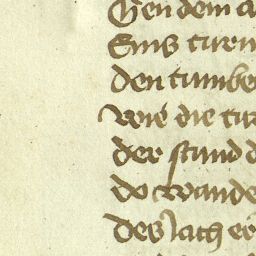 Gen dem a
Eins turn
den tumbe
wie die tur
der stund d
do wande
des jach er